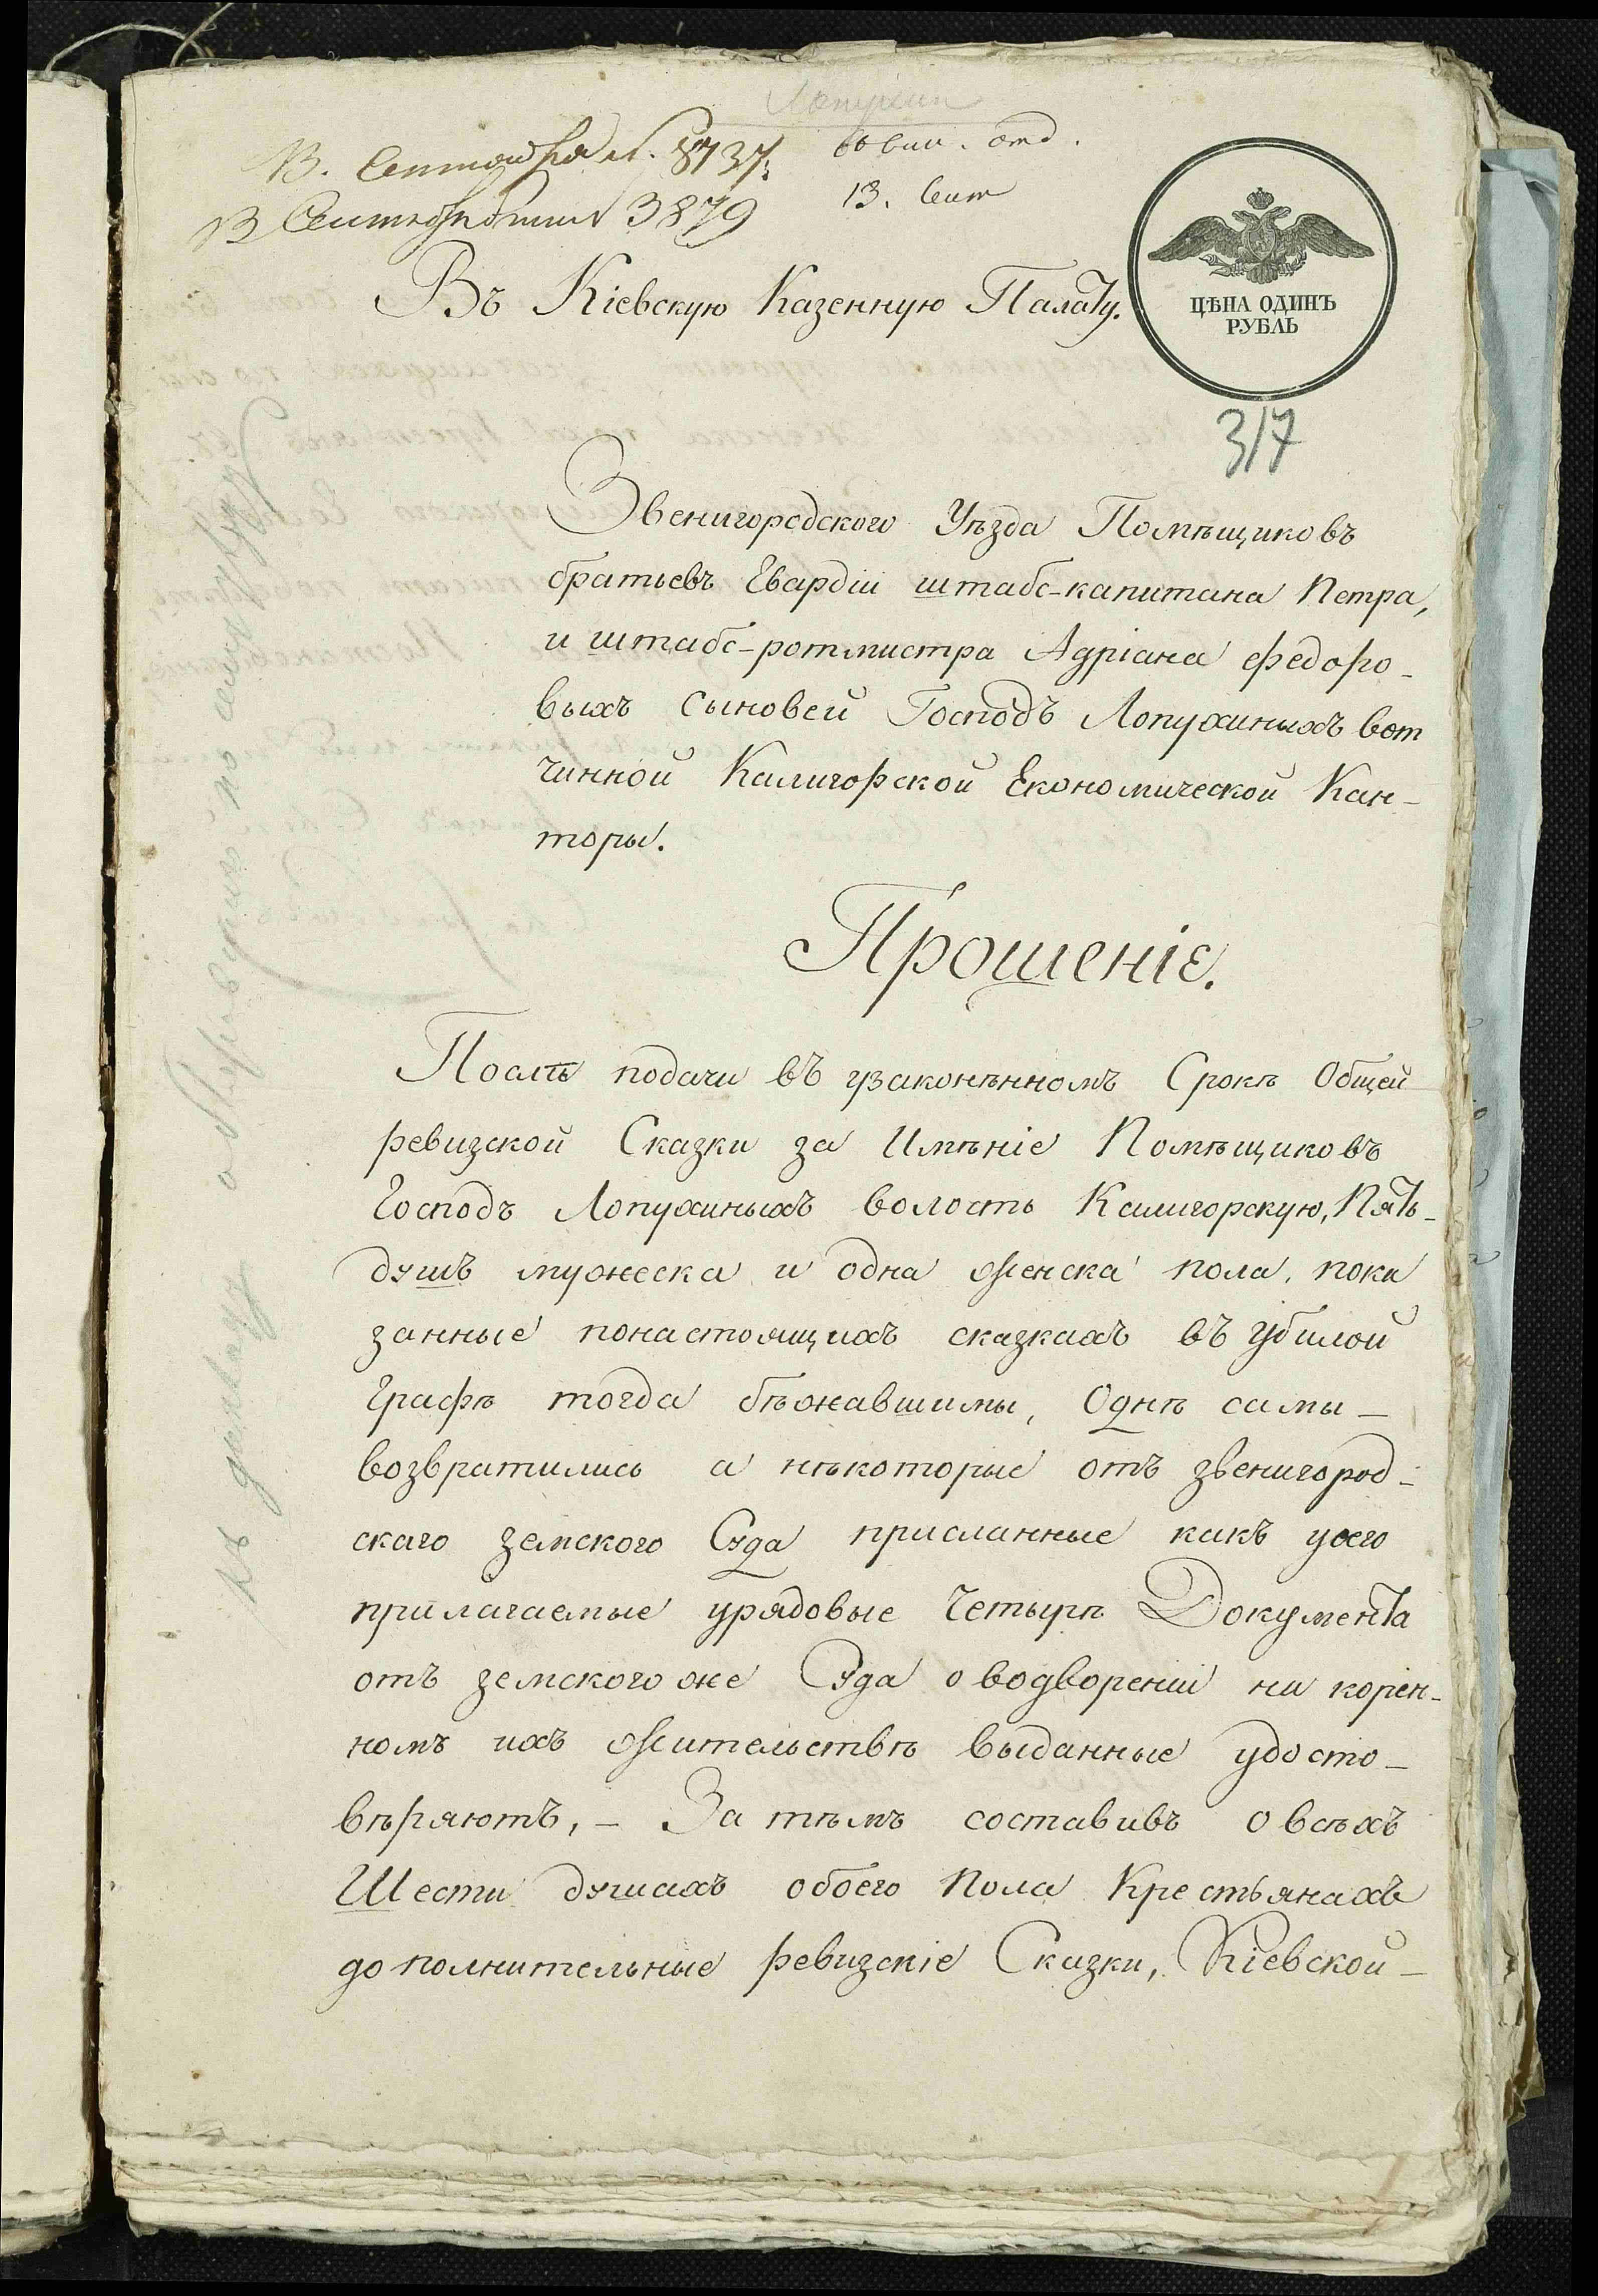 Лопухин
13. Сентября № 8737.
въ вин. отд.
13. Сент
13 Сентября 3879
ЦѢНА ОДИНЪ
РУБЛЬ
Въ Кіевскую Казенную Палату.
317
Звенигородского Уѣзда Помѣщиковъ
братьевъ Гвардіи штабс-капитана Петра,
и штабс-ротмистра Адріана Федоро-
выхъ сыновей Господъ Лопухиныхъ вот
чинной Калигорской Економической Кан-
торы.
Прошеніе.
Послѣ подачи въ узаконѣнномъ Срокѣ Общей
ревизской Сказки за Имѣніе Помѣщиковъ
Господъ Лопухиныхъ волость Калигорскую, Пять-
душъ мужеска и одна женска пола, пока
занные понастоящихъ сказкахъ въ убилой
Графѣ тогда бѣжавшимы, Однѣ самы-
возвратились а нѣкоторые отъ звенигород-
скаго земского Суда присланные какъ усего
прилагаемые урядовые Четырѣ Документа
отъ земскогоже Суда оводвореніи на корен-
номъ ихъ жительствѣ выданные удосто-
вѣряютъ, - За тѣмъ составивъ овсѣхъ
Шести душахъ обоего пола Крестьянахъ
дополнительные ревизскіе Сказки, Кіевской-